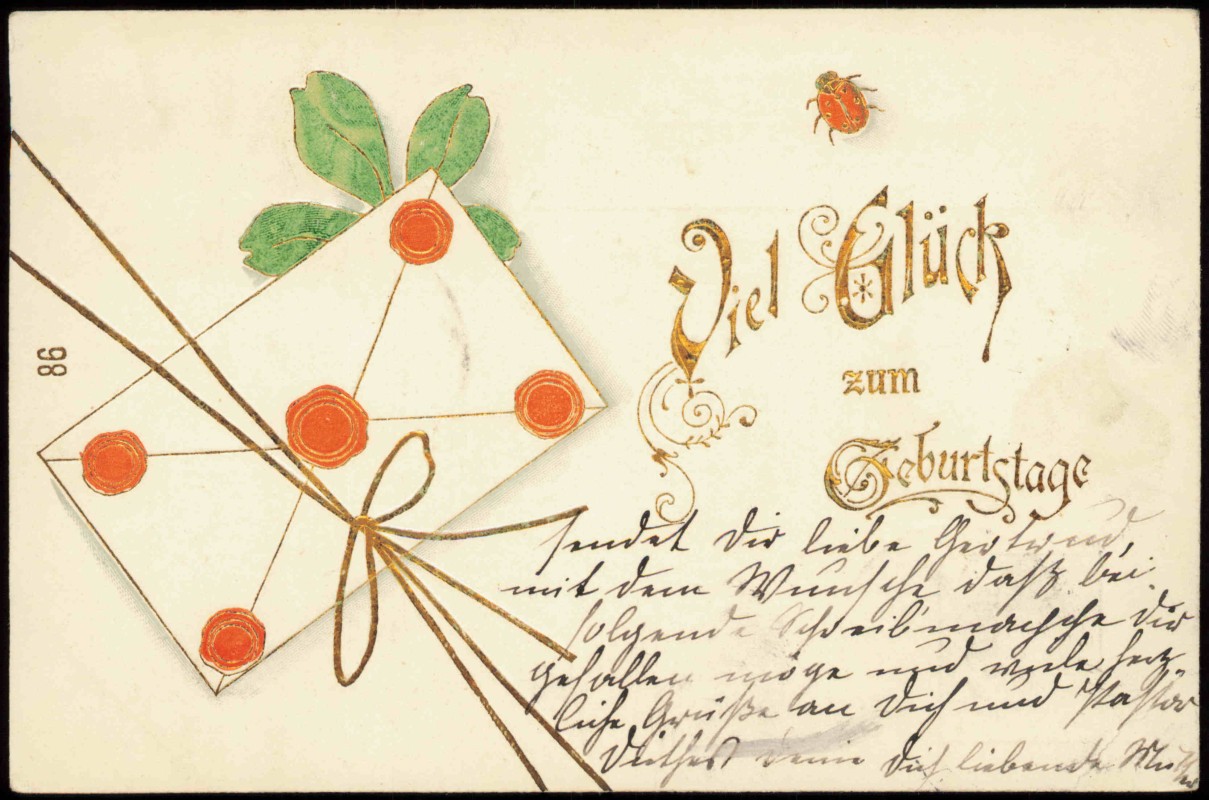 86
Viel Glück
zum
Geburtstage
sendet Dir liebe Gertrud,
mit dem Wunsche daß bei-
folgende Schreibmaphe Dir
gefallen möge und viele herz-
liche Grüße an Dich und Pastor
Deine Dich liebende Mutter